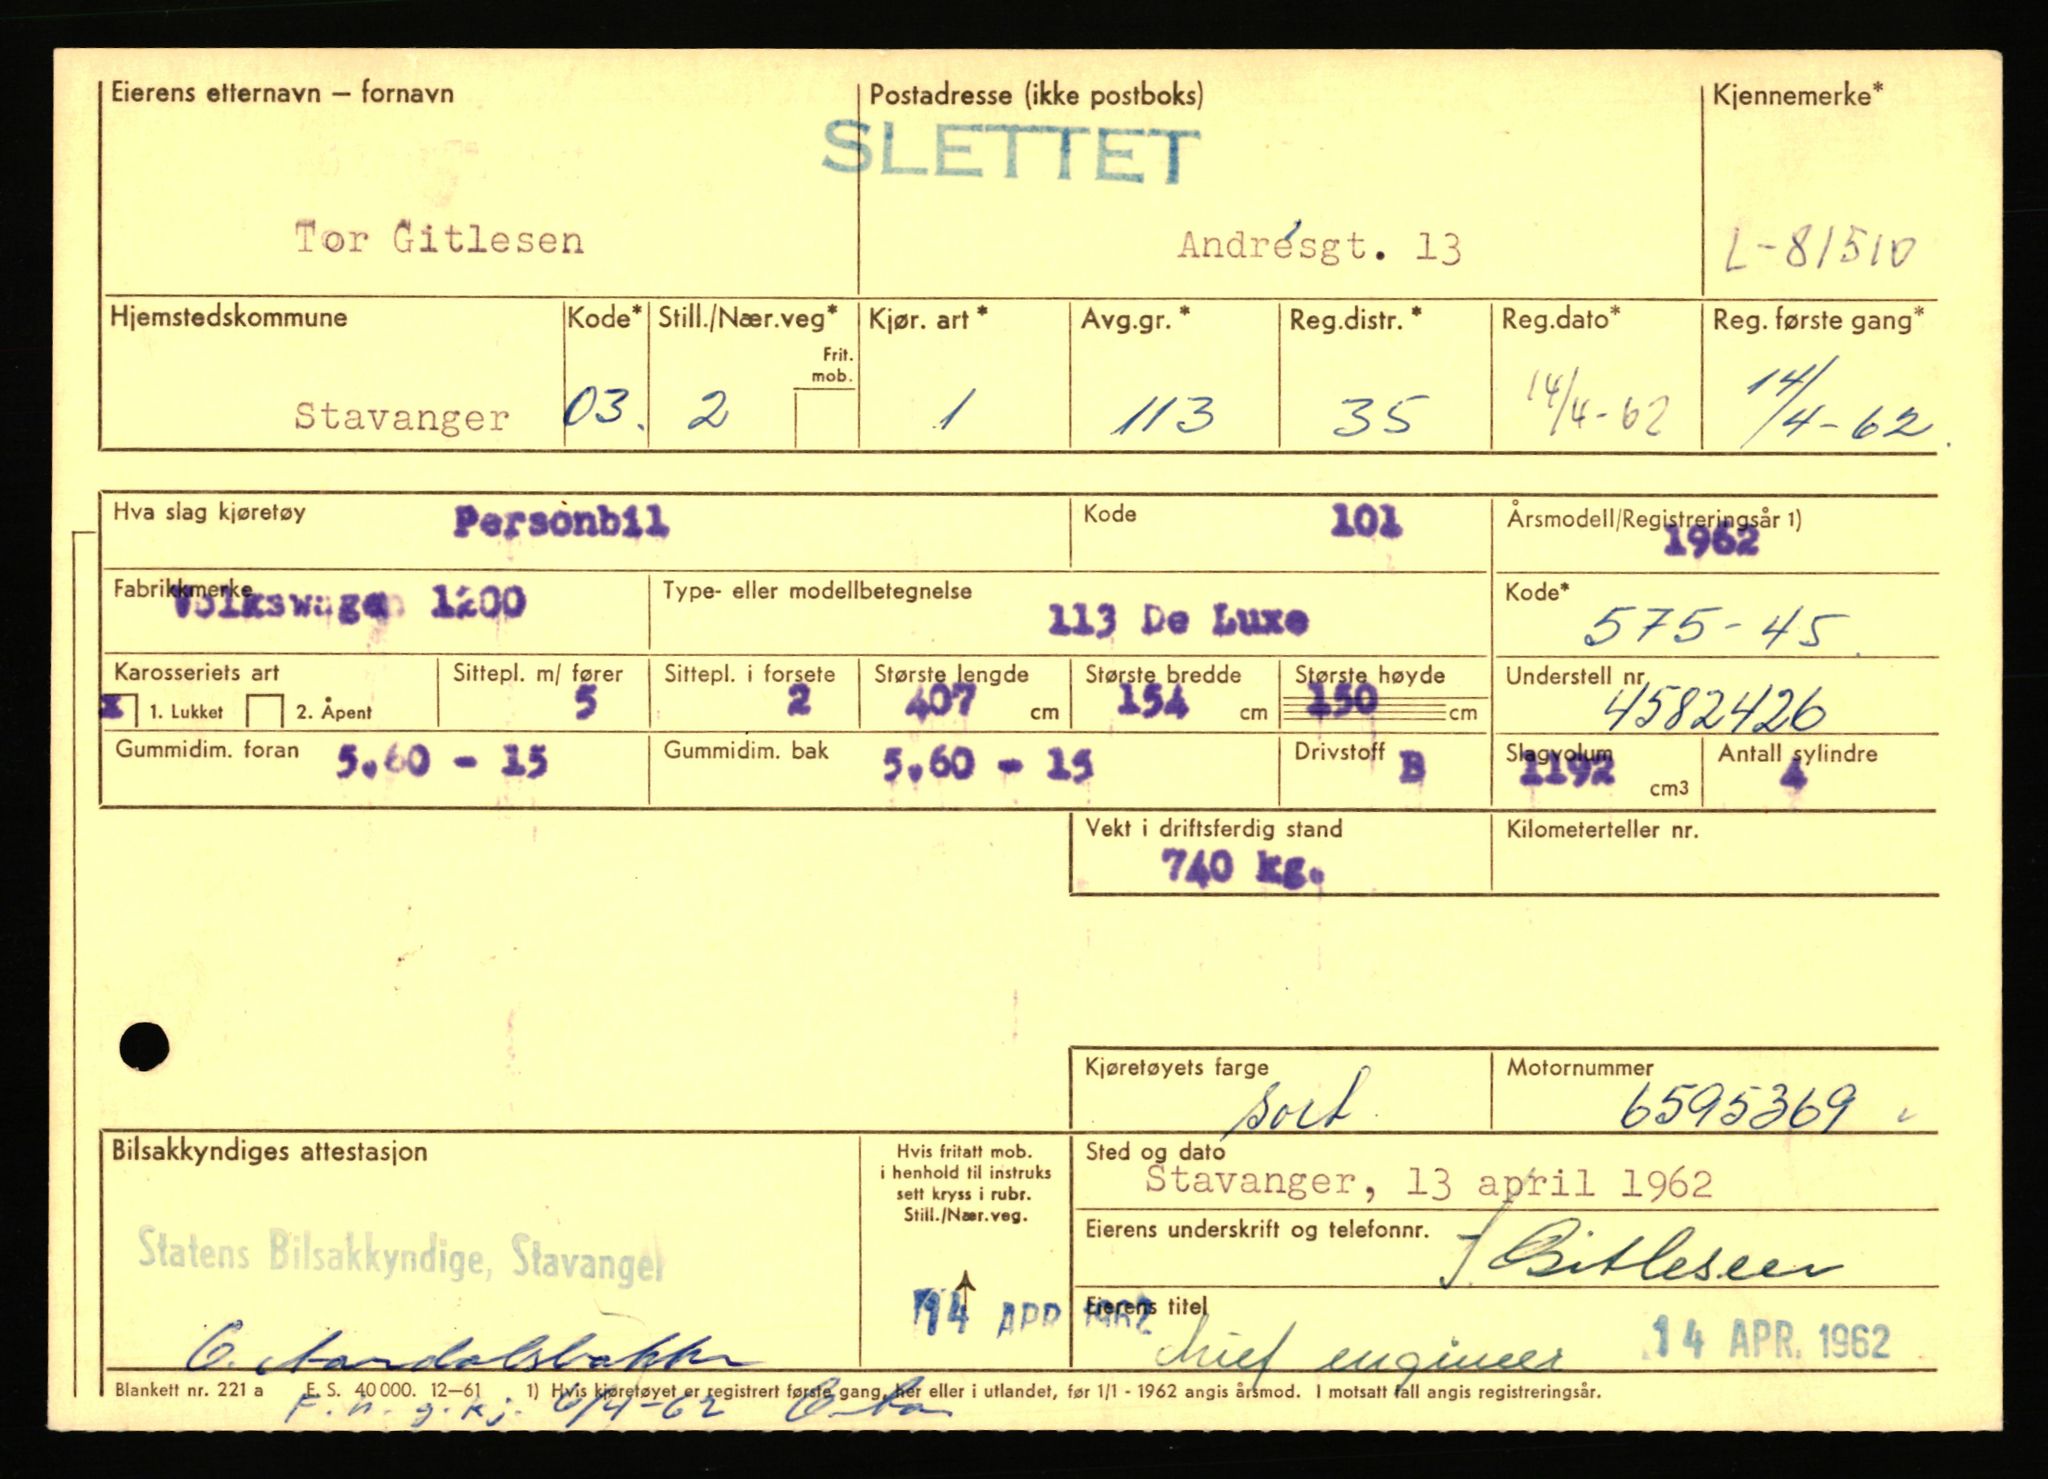 Eierens etternavn – fornavn Postadresse (ikke postboks) Kjennemerke*
SLETTET
Tor Gitlesen Andrésgt. 13 L-81510
Hjemstedskommune Kode* Still./Nær.veg* Kjør. art * Avg.gr. * Reg.distr. * Reg.dato* Reg. første gang*
Frit.
mob.
Stavanger 03. 2 1 113 35 14/4-62 14/4-62.
Hva slag kjøretøy Personbil Kode 101 Årsmodell/Registreringsår 1)
1962
Fabrikkmerke Volkswagen 1200 Type- eller modellbetegnelse Kode*
113 De Luxe 575-45.
Karosseriets art Sittepl. m/ fører Sittepl. i forsete Største lengde Største bredde Største høyde Understell nr.
x 1. Lukket 2. Åpent 5 2 407 cm 154 cm 150 cm 4582426
Gummidim. foran 5.60 - 15 Gummidim. bak 5.60 - 15 Drivstoff B Slagvolum 1192 cm3 Antall sylindre 4
Vekt i driftsferdig stand Kilometerteller nr.
740 kg.
Kjøretøyets farge Motornummer
sort 6595369
Bilsakkyndiges attestasjon Hvis fritatt mob.
i henhold til instruks
sett kryss i rubr.
Still./Nær.veg.
Sted og dato
Stavanger, 13 april 1962
Eierens underskrift og telefonnr.
T. Gitlesen
Statens Bilsakkyndige, Stavanger
14 APR 1962
Eierens titel
chief engineer 14 APR. 1962
Blankett nr. 221 a E. S. 40 000. 12–61 1) Hvis kjøretøyet er registrert første gang, her eller i utlandet, før 1/1 - 1962 angis årsmod. I motsatt fall angis registreringsår.
F.n.g.kj. 6/4-62